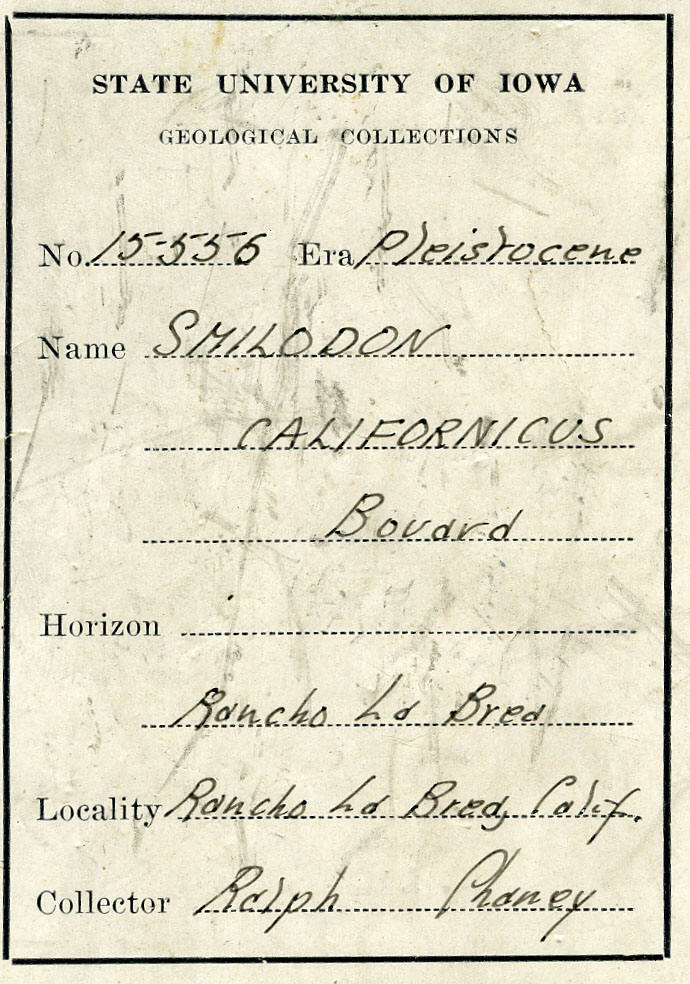 STATE UNIVERSITY OF IOWA
GEOLOGICAL COLLECTIONS
No. 15-556 Era Pleistocene
Name SMILODON
CALIFORNICUS
Bovard
Horizon
Rancho La Brea
Locality Rancho La Brea, Calif.
Collector Ralph Chaney